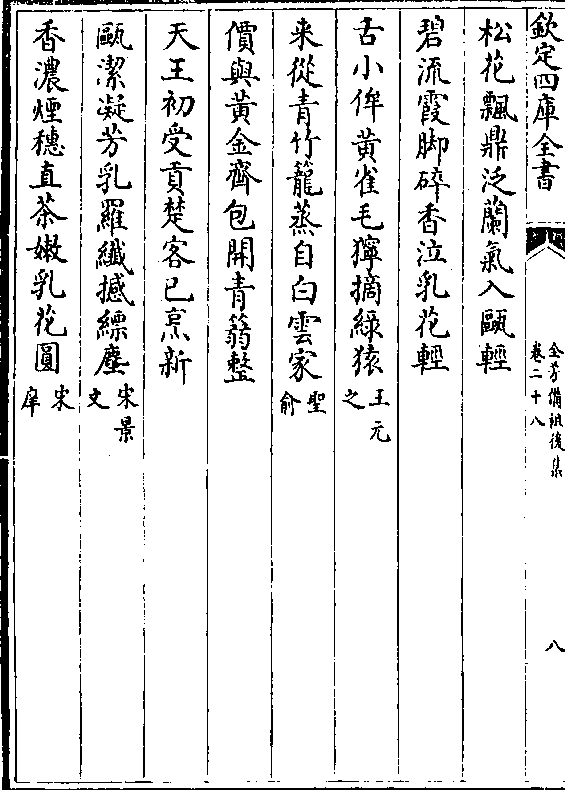 欽定四庫全書
全芳備祖後集
卷二十八
八
松花飄鼎泛蘭氣入甌輕
碧流霞脚碎香泣乳花輕
舌小侔黄雀毛獰摘綠猿王元之
来從青竹籠蒸自白雲家聖俞
價與黄金齊包開青篛整
天王初受貢楚客已烹新
甌潔凝芳乳羅纖撼縹塵宋景文
香濃煙穗直茶嫩乳花圓宋庠